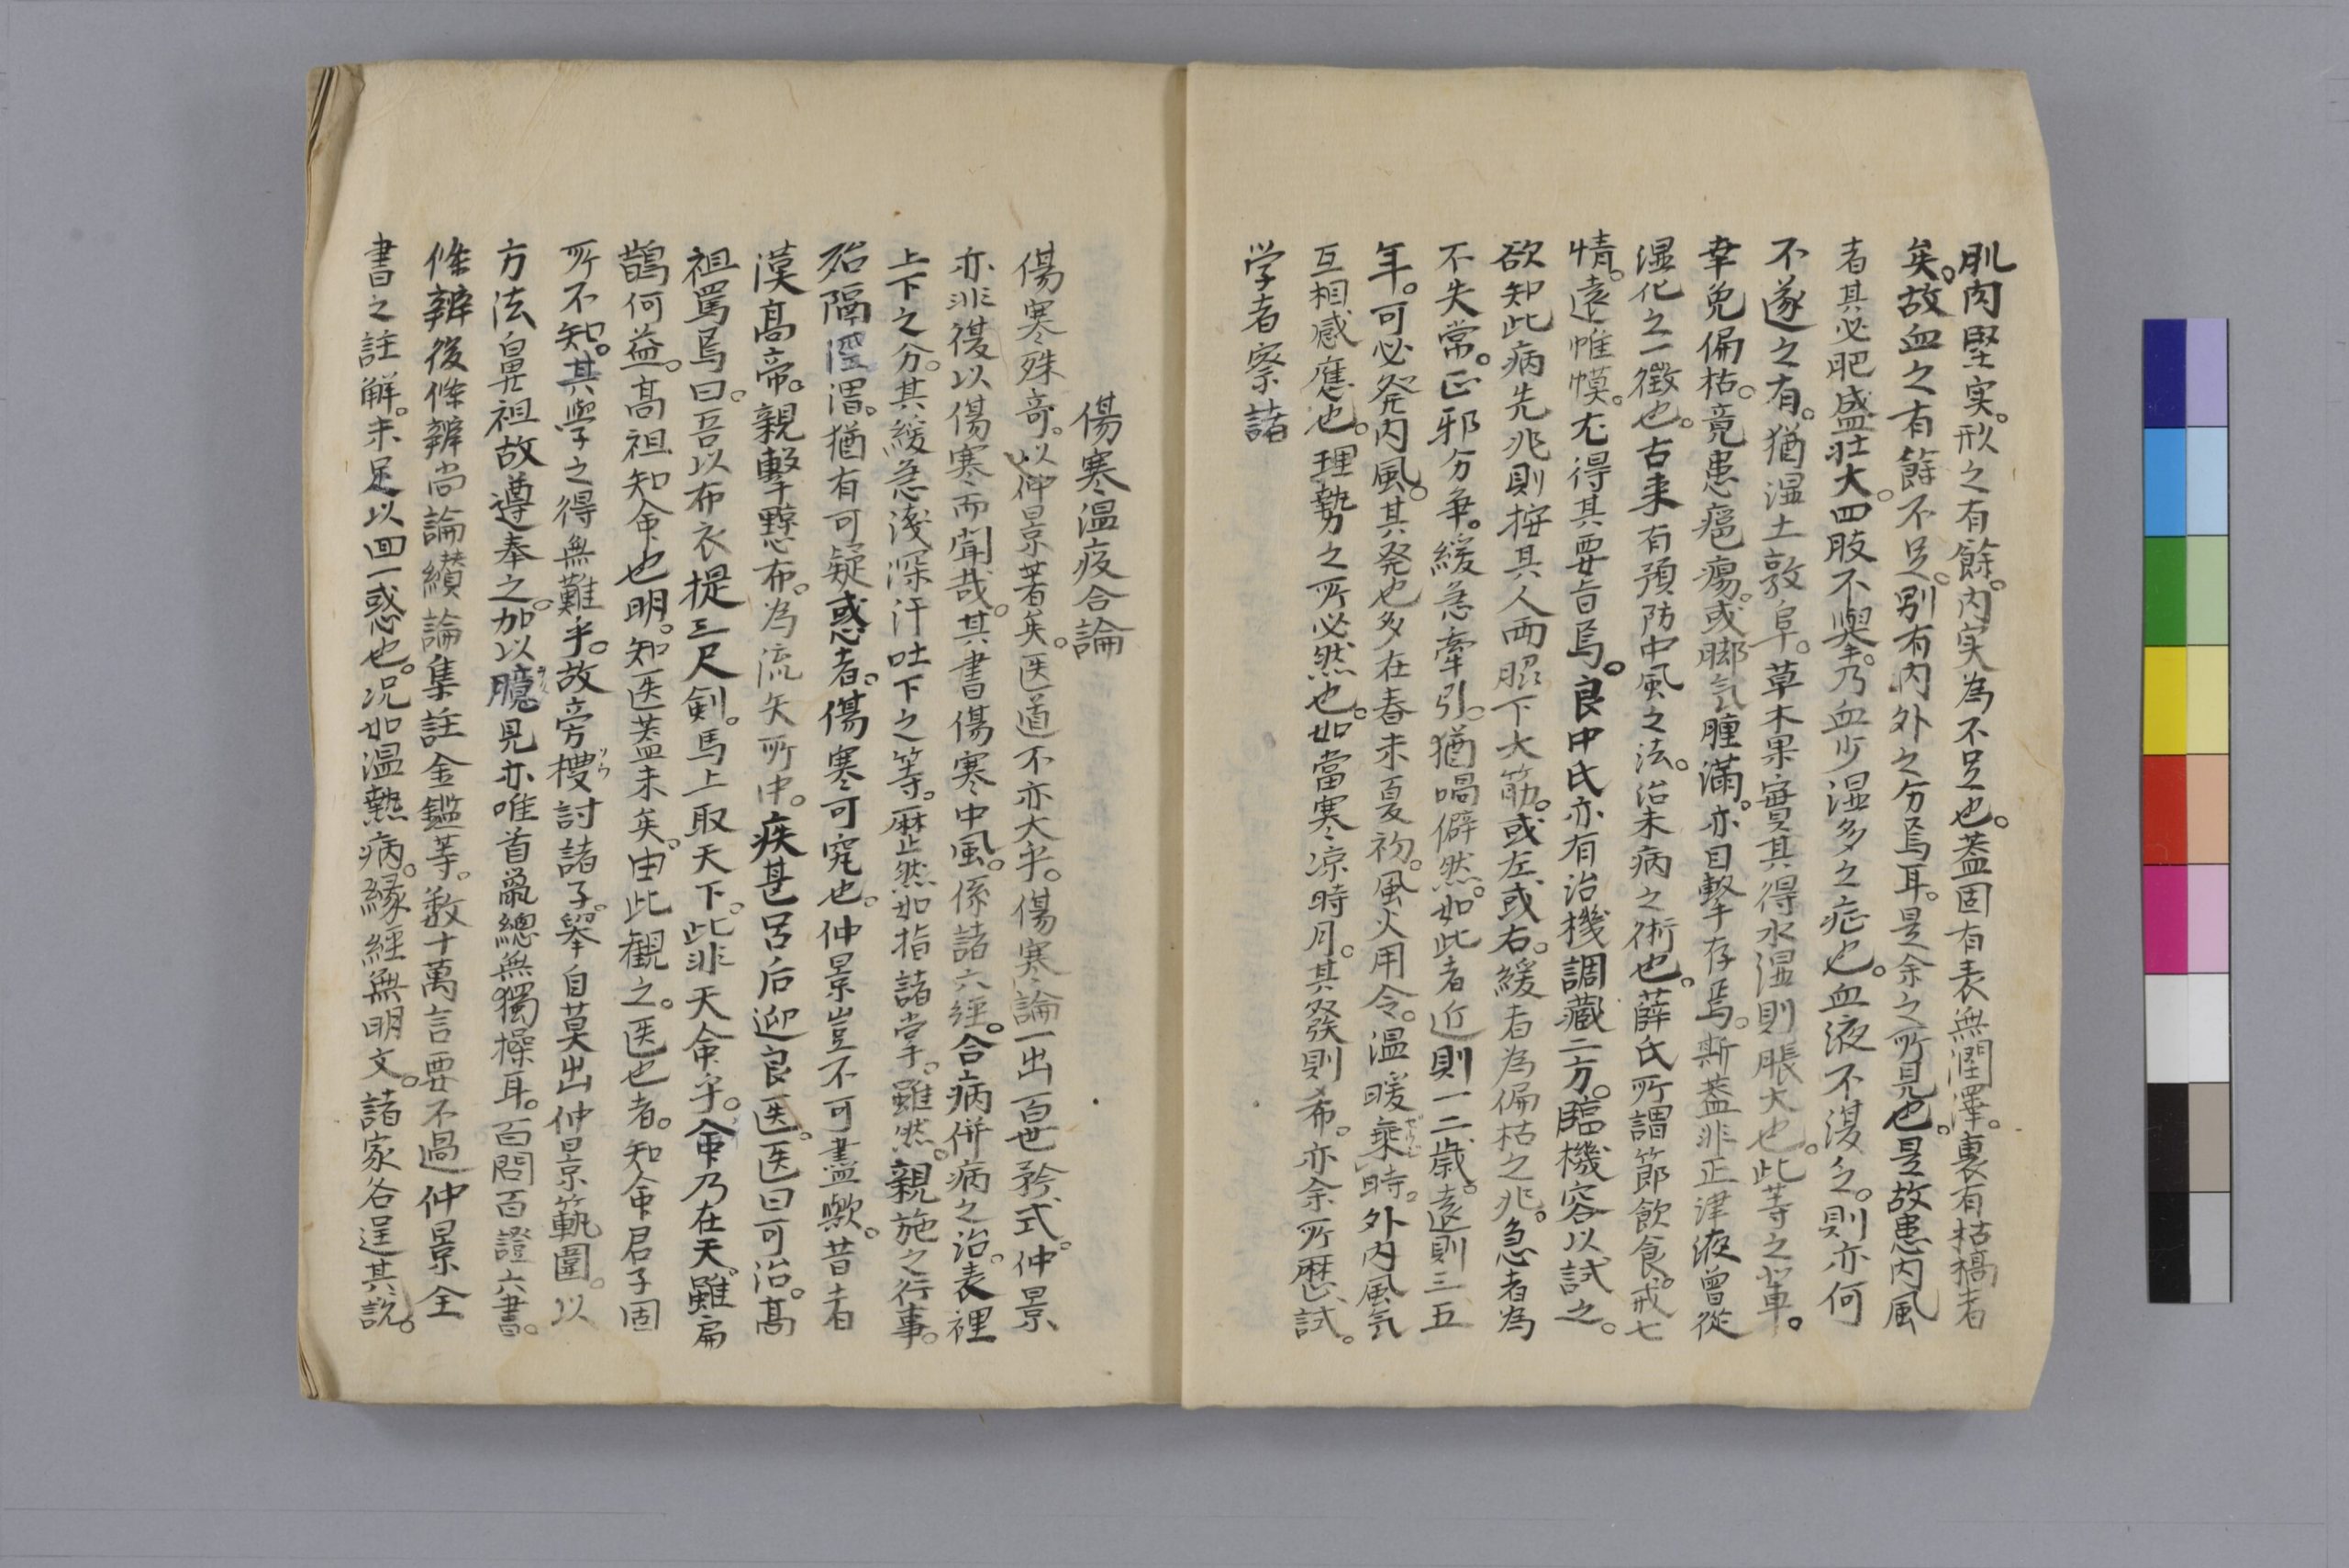 肌肉堅実。形之有餘。内実為不足也。蓋固有表無潤澤。裏有枯槁者
矣。故血之有餘不足。別有内外之分焉耳。是余之所見也。是故患内風
者其必肥盛壮大。四肢不擧。乃血少湿多之症也。血液不湿之。則亦何
不遂之有。猶湿土敦阜。草木果實其得水湿則脹大也。此等之輩。
幸免偏枯。竟患瘟瘍。或脚気腫滿。亦目擊存焉。斯蓋非正津液曾從
湿化之一徴也。古来有預防中風之法。治未病之術也。薛氏所謂節飲食。戒七
情。遠帷幙。尤得其要旨焉。良中氏亦有治機調藏二方。臨機容以試之。
欲知此病先兆則按其人両䐃下大筋。或左或右。緩者為偏枯之兆。急者為
不失常。正邪分争。緩急牽引。猶喎僻然。如此者近則一二歳。遠則三五
年。可必発内風。其発也多在春末夏初。風火用令。温暖乗時。外内風気
互相感應也。理勢之所必然也。如當寒凉時月。其發則希。亦余所歴試。
学者察諸
傷寒温疫合論
傷寒殊奇。以仲景著矣。医道不亦大乎。傷寒論一出百世矜式。仲景
亦非得以傷寒而聞哉。其書傷寒中風。係諸六經。合病併病之治。表裡
上下之分。其緩急淺深汗吐下之等。歴然如指諸掌。雖然。親施之行事。
殆隔涇渭。猶有可疑惑者。傷寒可究也。仲景豈不可盡歟。昔者
漢高帝。親擊黥布。為流矢所中。疾甚呂后迎良医。医曰可治。高
祖罵焉曰。吾以布衣提三尺剣。馬上取天下。此非天命乎。命乃在天。雖扁
鵲何益。高祖知命也明。知医蓋未矣。由此観之。医也者。知命君子固
所不知。其學之得無難乎。故旁㮴討諸子。擧自莫出仲景範圍。以
方法鼻祖故遵奉之。加以臆見亦唯首鼠總無獨操耳。百問百證六書。
條辨後條辨尚論纉論集註金鑑等。數十萬言要不過仲景全
書之註解。未足以回一惑也。况如温熱病。縁經無明文。諸家各逞其説。